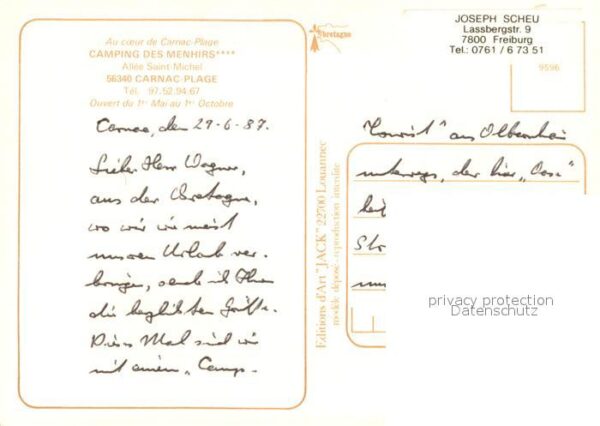 Au cœur de Carnac-Plage
CAMPING DES MENHIRS****
Allée Saint-Michel
56340 CARNAC-PLAGE
Tél. 97.52.94.67
Ouvert du 1er Mai au 1er Octobre
Carnac, den 29-6-87.
Lieber Herr Wagner,
aus der Bretagne,
wo wir wir meist
unseren Urlaub ver-
bringen, sende ich Ihnen
die herzlichsten Grüße.
Dieses Mal sind wir
mit einem „Camp-
Bretagne
Editions d'Art "JACK" 22700 Louannec
modèle déposé - reproduction interdite
JOSEPH SCHEU
Lassbergstr. 9
7800 Freiburg
Tel.: 0761 / 6 73 51
9596
Tourist" aus
unterwegs, der hier
privacy protection
Datenschutz